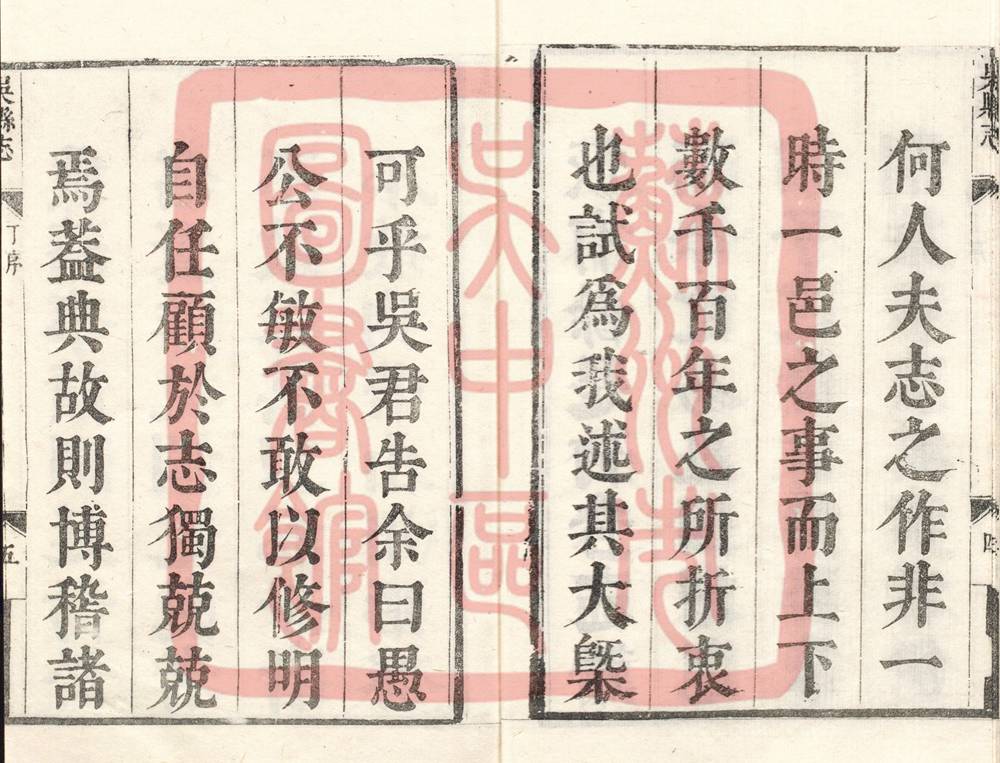 吳縣志
何人夫志之作非一
時一邑之事而上下
數千百年之所折衷
也試爲我述其大槩
可乎吳君告余曰愚
公不敏不敢以修明
自任顧於志獨兢兢
焉蓋典故則博稽諸
吳縣志
丁序
五
蘇州市
吳中區
圖書館